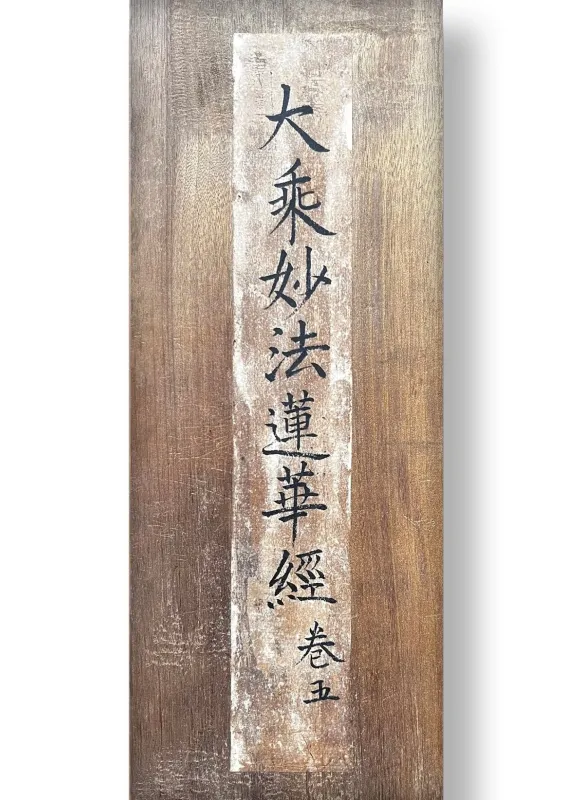 大乘妙法蓮華經
卷五